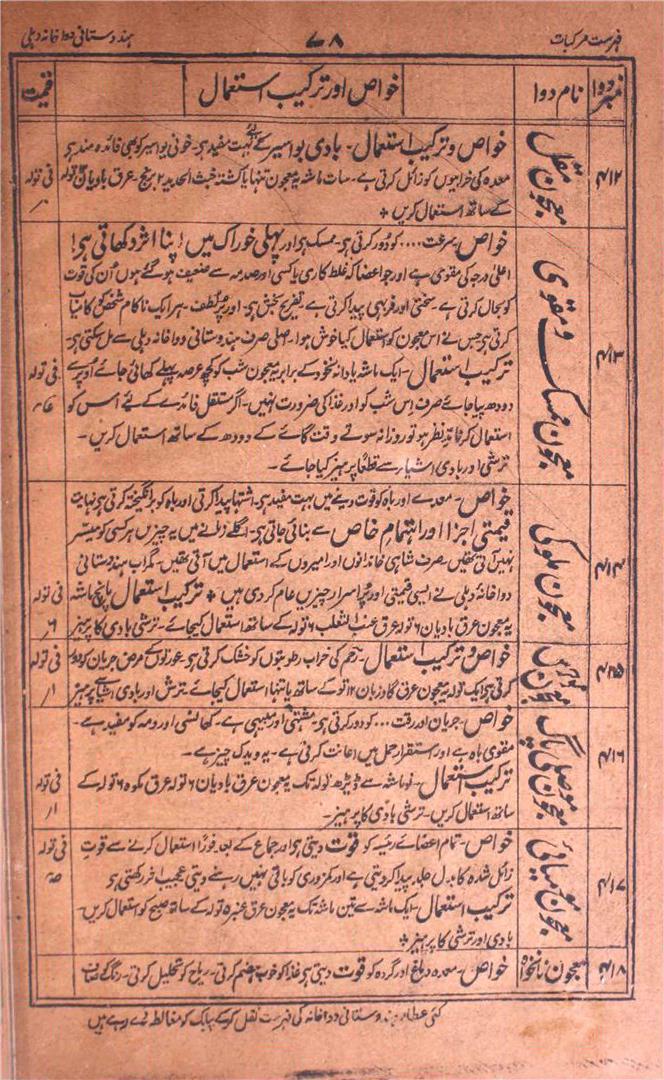 فہرست مرکبات ۷۸ ہندوستانی دواخانہ دہلی
نمبر دوا نام دوا خواص اور ترکیب استعمال قیمت
۴۱۲ معجون مقل
خواص و ترکیب استعمال۔ بادی بواسیر کے لئے بہت مفید ہے۔ خونی بواسیر کو بھی فائدہ مند ہے
معدہ کی خرابیوں کو زائل کرتی ہے۔ سات ماشہ یہ معجون تنہا یا کشتہ خبث الحدید ۲ برنج۔ عرق بادیان ۱۲ تولہ
کے ساتھ استعمال کریں
فی تولہ
۴۱۳ معجون ممسک و مقوی
خواص۔ سرعت .... کو دور کرتی ہے۔ ممسک ہے اور پہلی خوراک میں! اپنا اثر دکھاتی ہے!
اعلیٰ درجہ کی مقوی ہے اور جو اعضا کہ غلط کاری یا کسی اور صدمہ سے ضعیف ہو گئے ہوں اُن کی قوت
کو بحال کرتی ہے۔ سختی اور فربہی پیدا کرتی ہے تفریح بخش ہے۔ اور پُر لطف۔ ہر ایک ناکام شخص کو کامیاب
کرتی ہے جس نے اس معجون کو استعمال کیا خوش ہوا۔ اصلی صرف ہندوستانی دواخانہ دہلی سے مل سکتی ہے
ترکیب استعمال۔ ایک ماشہ یا دانہ نخود کے برابر یہ معجون شب کو کچھ عرصہ پہلے کھائی جائے اُوپر سے
دودھ پیا جائے صرف اِس شب کو اور غذا کی ضرورت نہیں۔ اگر مستقل فائدے کے لئے اس کو
استعمال کرنا مدِ نظر ہو تو روزانہ سوتے وقت گائے کے دودھ کے ساتھ استعمال کریں۔
ترشی اور بادی اشیار سے قطعاً پرہیز کیا جائے۔
فی تولہ
۴۱۴ معجون ملوکی
خواص۔ معدے اور باہ کو قوت دینے میں بہت مفید ہے۔ اشتہا پیدا کرتی اور باہ کو برانگیختہ کرتی ہے نہایت
قیمتی اجزا اور اہتمام خاص سے بنائی جاتی ہے۔ اگلے زمانے میں یہ چیزیں ہر کسی کو میسر
نہیں آتی تھیں۔ صرف شاہی خاندانوں اور امیروں کے استعمال میں آتی تھیں۔ مگر اب ہندوستانی
دواخانۂ دہلی نے ایسی قیمتی اور پُر اسرار چیزیں عام کر دی ہیں ترکیب استعمال پانچ ماشہ
یہ معجون عرق بادیان ۶ تولہ عرق عنب الثعلب ۶ تولہ کے ساتھ استعمال کیجائے۔ ترشی بادی کا پرہیز
فی تولہ ۶ر
۴۱۵ معجون
خواص و ترکیب استعمال۔ رحم کی خراب رطوبتوں کو خشک کرتی ہے۔ عورتوں کے مرض جریان کو دور
کرتی ہے ایک تولہ یہ معجون عرق گاؤزبان ۱۲ تولہ کے ساتھ یا تنہا استعمال کیجائے۔ ترش اور بادی اشیا سے پرہیز
فی تولہ ۱ر
۴۱۶ معجون موصلی پاگ
خواص۔ جریان اور رقت ... کو دور کرتی ہے۔ مشتہی اور مبہی ہے۔ کھانسی اور دمہ کو مفید ہے۔
مقوی باہ ہے اور استقرار حمل میں اعانت کرتی ہے۔ یہ ویدک چیز ہے۔
ترکیب استعمال۔ نو ماشہ سے ڈیڑھ تولہ تک یہ معجون عرق بادیان ۶ تولہ عرق مکوہ ۶ تولہ کے
ساتھ استعمال کریں۔ ترشی بادی کا پرہیز۔
فی تولہ ۱ر
۴۱۷ معجون مومیائی
خواص۔ تمام اعضائے رئیسہ کو قوت دیتی ہے اور جماع کے بعد فوراً استعمال کرنے سے قوتِ
زائل شدہ کا بدل جلد پیدا کر دیتی ہے اور کمزوری کو باقی نہیں رہنے دیتی عجیب اثر رکھتی ہے
ترکیب استعمال۔ ایک ماشہ سے تین ماشہ تک یہ معجون عرق عنبر ۵ تولہ کے ساتھ صبح کو استعمال کریں۔
بادی اور ترشی کا پرہیز
فی تولہ
۴۱۸ معجون نانخواہ
خواص۔ معدہ دماغ اور گردہ کو قوت دیتی ہے غذا کو خوب ہضم کرتی۔ ریاح کو تحلیل کرتی۔ رنگ کو صاف
کئی عطار ہندوستانی دواخانہ کی فہرست نقل کر کے پبلک کو مغالطہ دے رہے ہیں